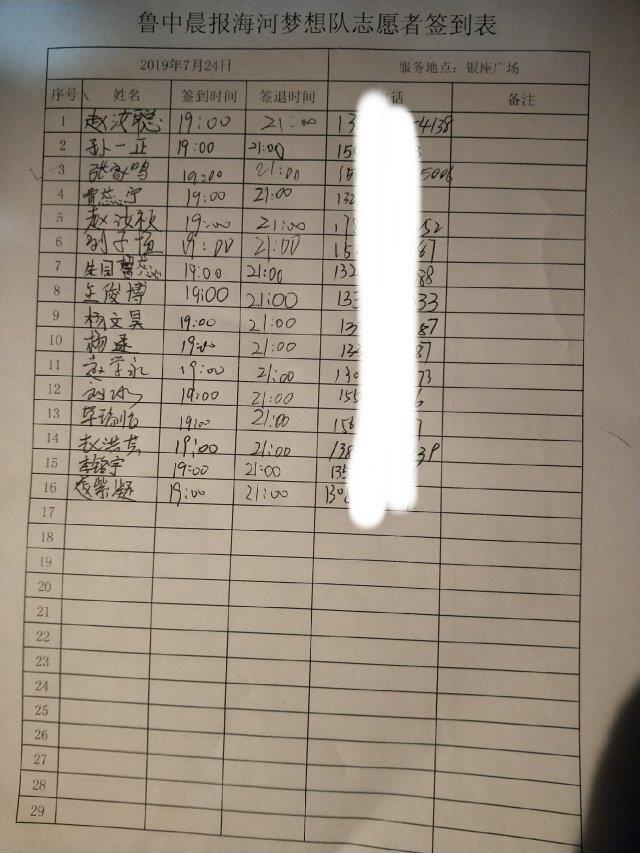 鲁中晨报海河梦想队志愿者签到表
2019年7月24日 服务地点：银座广场
序号 姓名 签到时间 签退时间 电话 备注
1 赵汝聪 19:00 21:00 13 4138
2 孙一正 19:00 21:00 150 3
3 张家鸣 19:00 21:00 15 5006
4 贾蕊宁 19:00 21:00 132
5 赵汝秋 19:00 21:00 178 52
6 刘子恒 19:00 21:00 15 67
7 19:00 21:00 132 88
8 孟俊博 19:00 21:00 133 33
9 杨文昊 19:00 21:00 132 87
10 杨 19:00 21:00 132 87
11 赵学永 19:00 21:00 130 73
12 刘冰 19:00 21:00 155 6
13 19:00 21:00 156 7
14 赵浩 19:00 21:00 138 39
15 李铭宇 19:00 21:00 135
16 紫凝 19:00 21:00 130
17
18
19
20
21
22
23
24
25
26
27
28
29